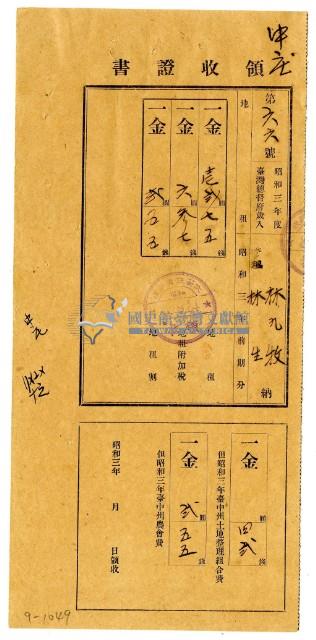 中庄
領收證書
第六六號
昭和三年度
臺灣總督府歲入
地租
昭和三 前期分
林九牧
林生
納
一金 壹貳七五 圓 錢 地租
一金 六參七 圓 錢 地租附加税
一金 貳五五 圓 錢 地租割
國史館臺灣文獻館
一金 四貳 圓 錢
但昭和三年臺中州土地整理組合費
一金 貳五五 圓 錢
但昭和三年臺中州農會費
昭和三年 月 日領收
9-1049